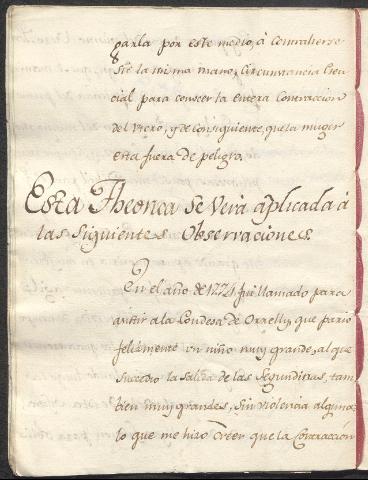 parla por este medio, à contrahense
sie la misma mano, Circunstancia Esen-
cial para conocer la entera Contraccion
del Utero, y de consiguiente, que la muger
esta fuera de peligro.
Esta Theorica se Verá aplicada à
las Siguientes Observaciones.
En el año de 1724 fui llamado para
asistir a la Condesa de Orrelly, que pario
felizmente un niño muy grande, al que
sucedio la salida de las Segundinas, tam
bien muy grandes, sin violencia alguna,
lo que me hizo Creer que la Contraccion